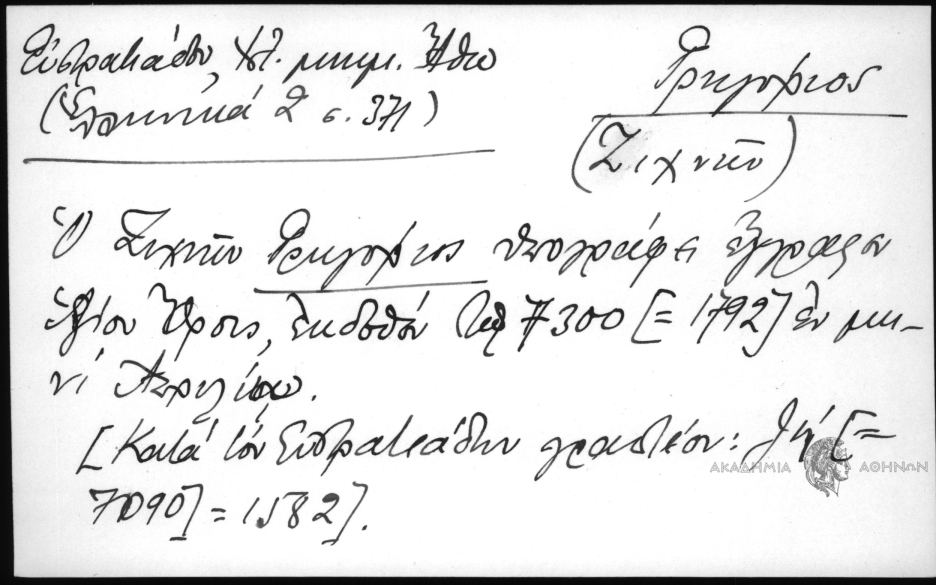 Εὐστρατιάδου, Ἱστ. μνημ. Ἄθω
(Ἑλληνικά 2 σ. 371)
Γρηγόριος
(Ζιχνῶν)
Ὁ Ζιχνῶν Γρηγόριος ὑπογράφει ἔγγραφον
Ἁγίου Ὄρους, ἐκδοθὲν τῷ 7300 [= 1792] ἐν μη-
νί Ἀπριλίῳ.
[Κατά τόν Εὐστρατιάδην γραπτέον: [=
7090] = 1582].
ΑΚΑΔΗΜΙΑ ΑΘΗΝΩΝ